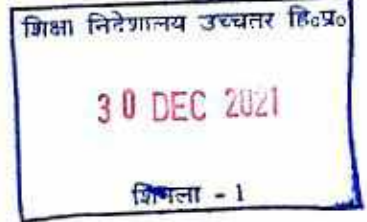 शिक्षा निदेशालय उच्चतर हि०प्र०
30 DEC 2021
शिमला - 1